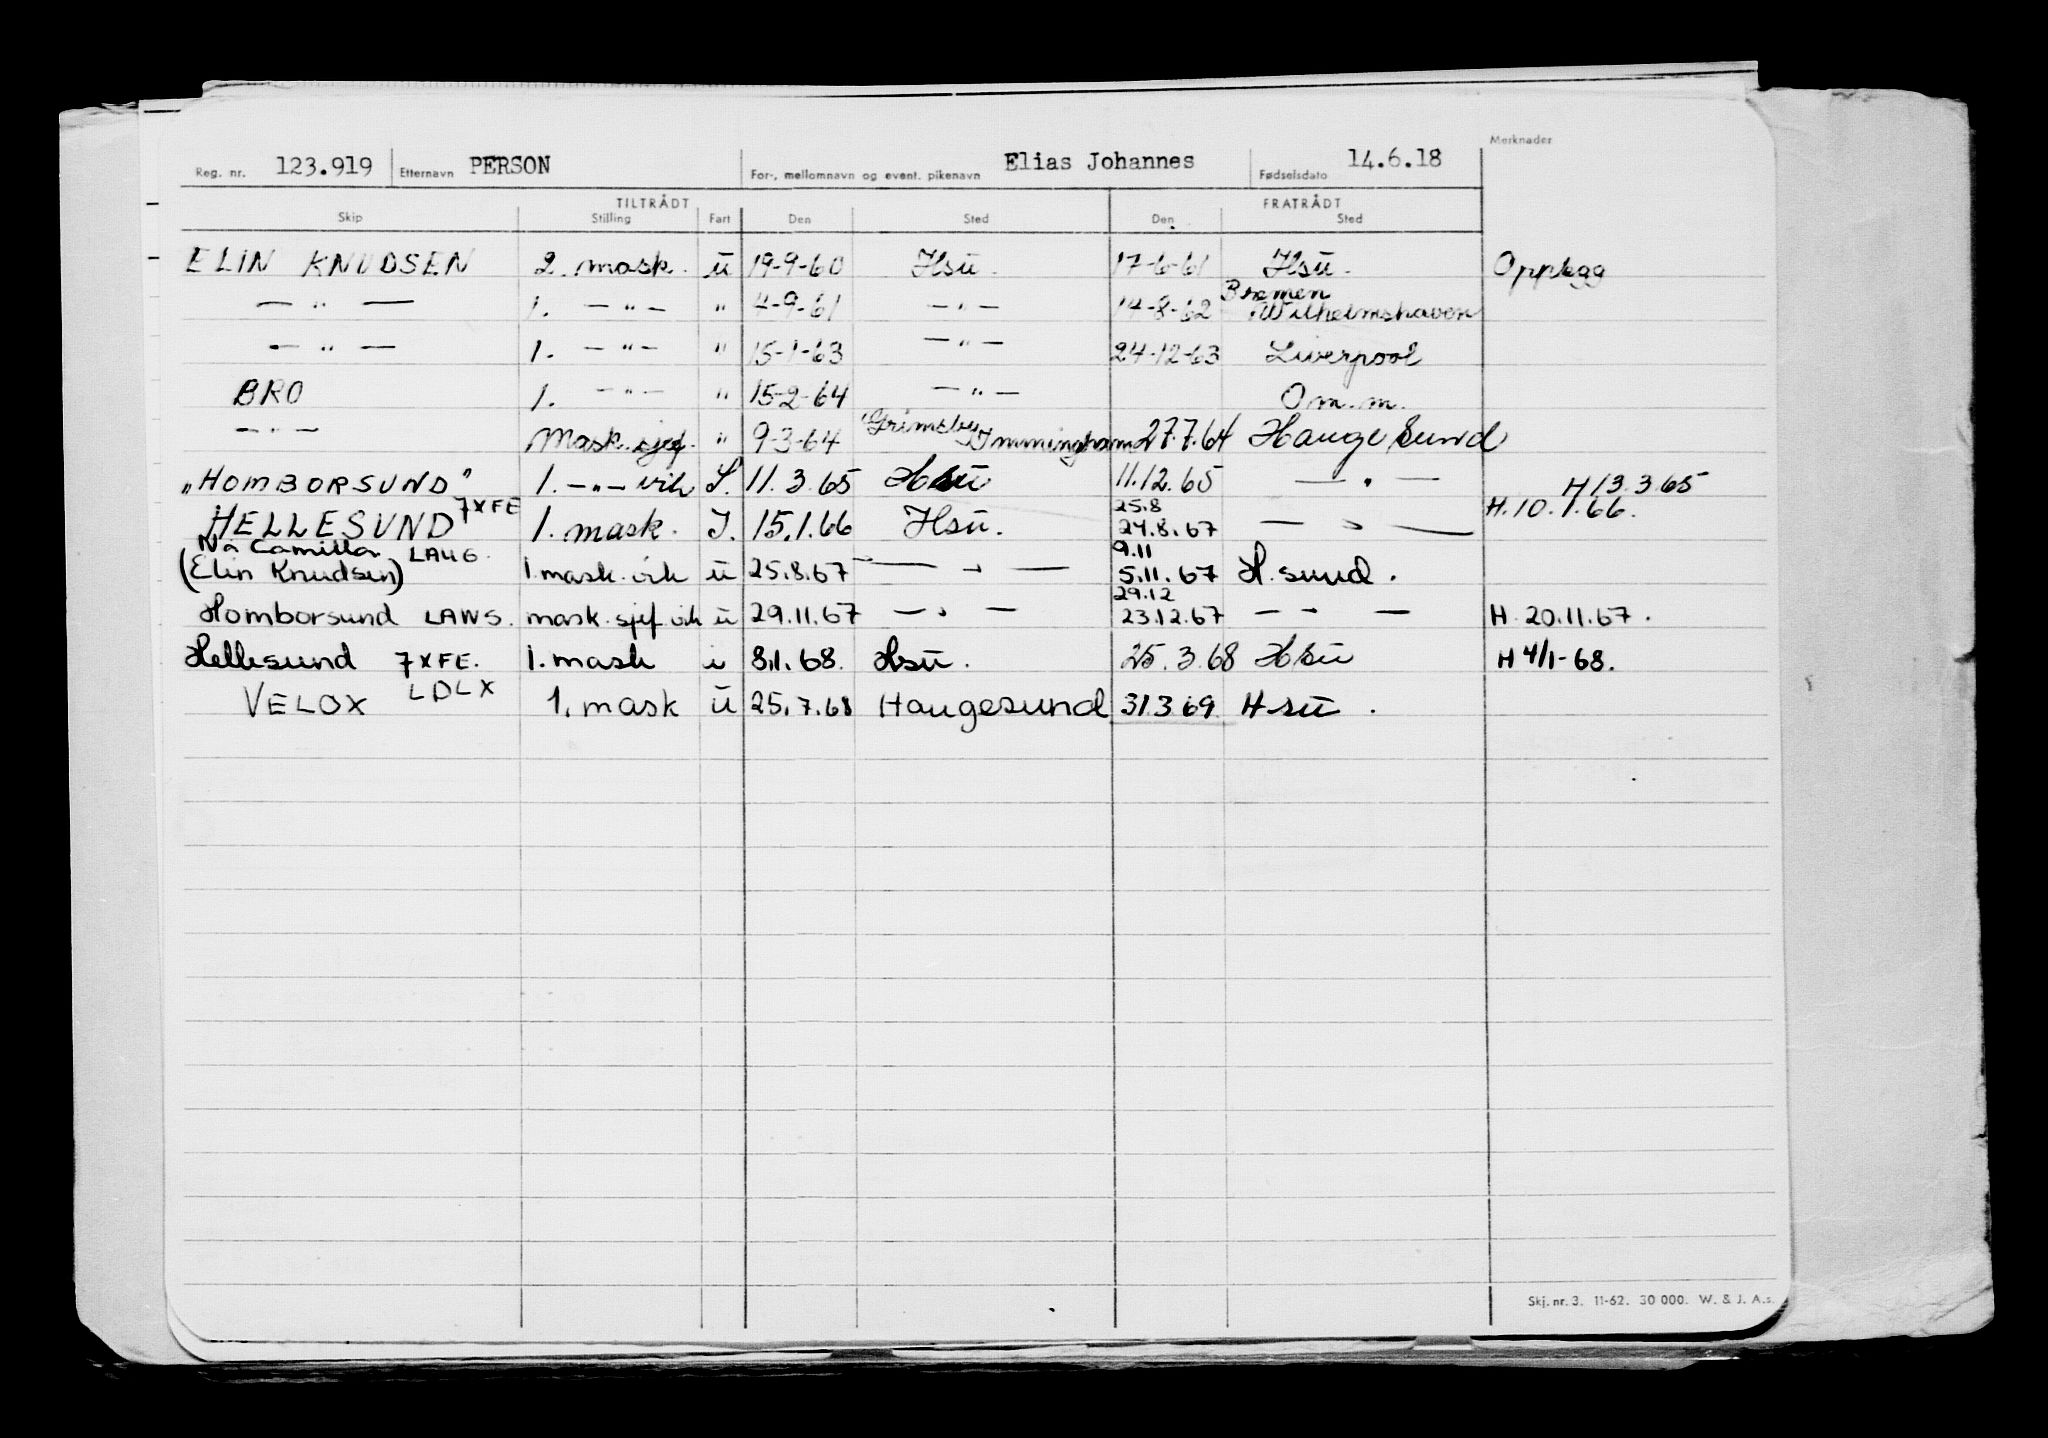 Merknader
Reg. nr. 123.919 Etternavn PERSON For-, mellomnavn og event. pikenavn Elias Johannes Fødselsdato 14.6.18
TILTRÅDT FRATRÅDT
Skip Stilling Fart Den Sted Den Sted
ELIN KNUDSEN 2. mask. u 19-9-60 Hsu. 17-6-61 Hsu. Opplegg
— " — 1. — " — " 4-9-61 — " — 14-8-62 Bremen Wilhelmshaven
— " — 1. — " — " 15-1-63 — " — 24-12-63 Liverpool
BRO 1. — " — " 15-2-64 — " — Om.m.
— " — Mask.sjef. " 9-3-64 Grimsby Immingham 27.7.64 Haugesund
"HOMBORSUND" 1. — " — vik S. 11.3.65 Hsu 11.12.65 — " — H 13.3.65
HELLESUND 7XFE 1. mask. I. 15.1.66 Hsu. 25.8 24.8.67 — " — H. 10.1.66.
Na Camilla
(Elin Knudsen) LAUG 1. mask. vik u 25.8.67 — " — 9.11 5.11.67 H.sund.
Homborsund LAWS. mask.sjef.vik u 29.11.67 — " — 29.12 23.12.67 — " — H. 20.11.67.
Hellesund 7XFE. 1. mask u 8.1.68. Hsu. 25.3.68 Hsu H 4/1-68.
VELOX LDLX 1. mask u 25.7.68 Haugesund 31.3.69. Hsu.
Skj. nr. 3. 11-62. 30 000. W. & J. A.s.